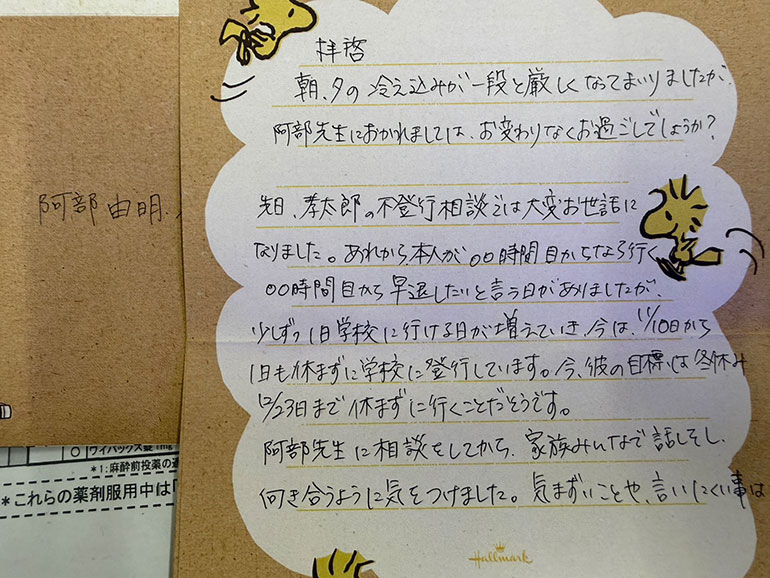 拝啓
朝、夕の冷え込みが一段と厳しくなてまいりましたが、
阿部先生におかれましては、お変わりなくお過ごしでしょうか?
先日、孝太郎の不登行相談では大変お世話に
なりました。あれから、本人が〇〇時間目からなら行く
〇〇時間目から早退したいと言う日がありましたが、
少しずつ1日学校に行ける日が増えていき、今は、11/10日から
1日も休まずに学校に登行しています。今、彼の目標は冬休み
12/23日まで休まずに行くことだそうです。
阿部先生に相談をしてから、家族みんなで話しをし、
向き合うように気をつけました。気まずいことや、言いにくい事は
Hallmark
阿部 由明
〇 ワイパックス錠
*1:麻酔前投薬の
*これらの薬剤服用中は